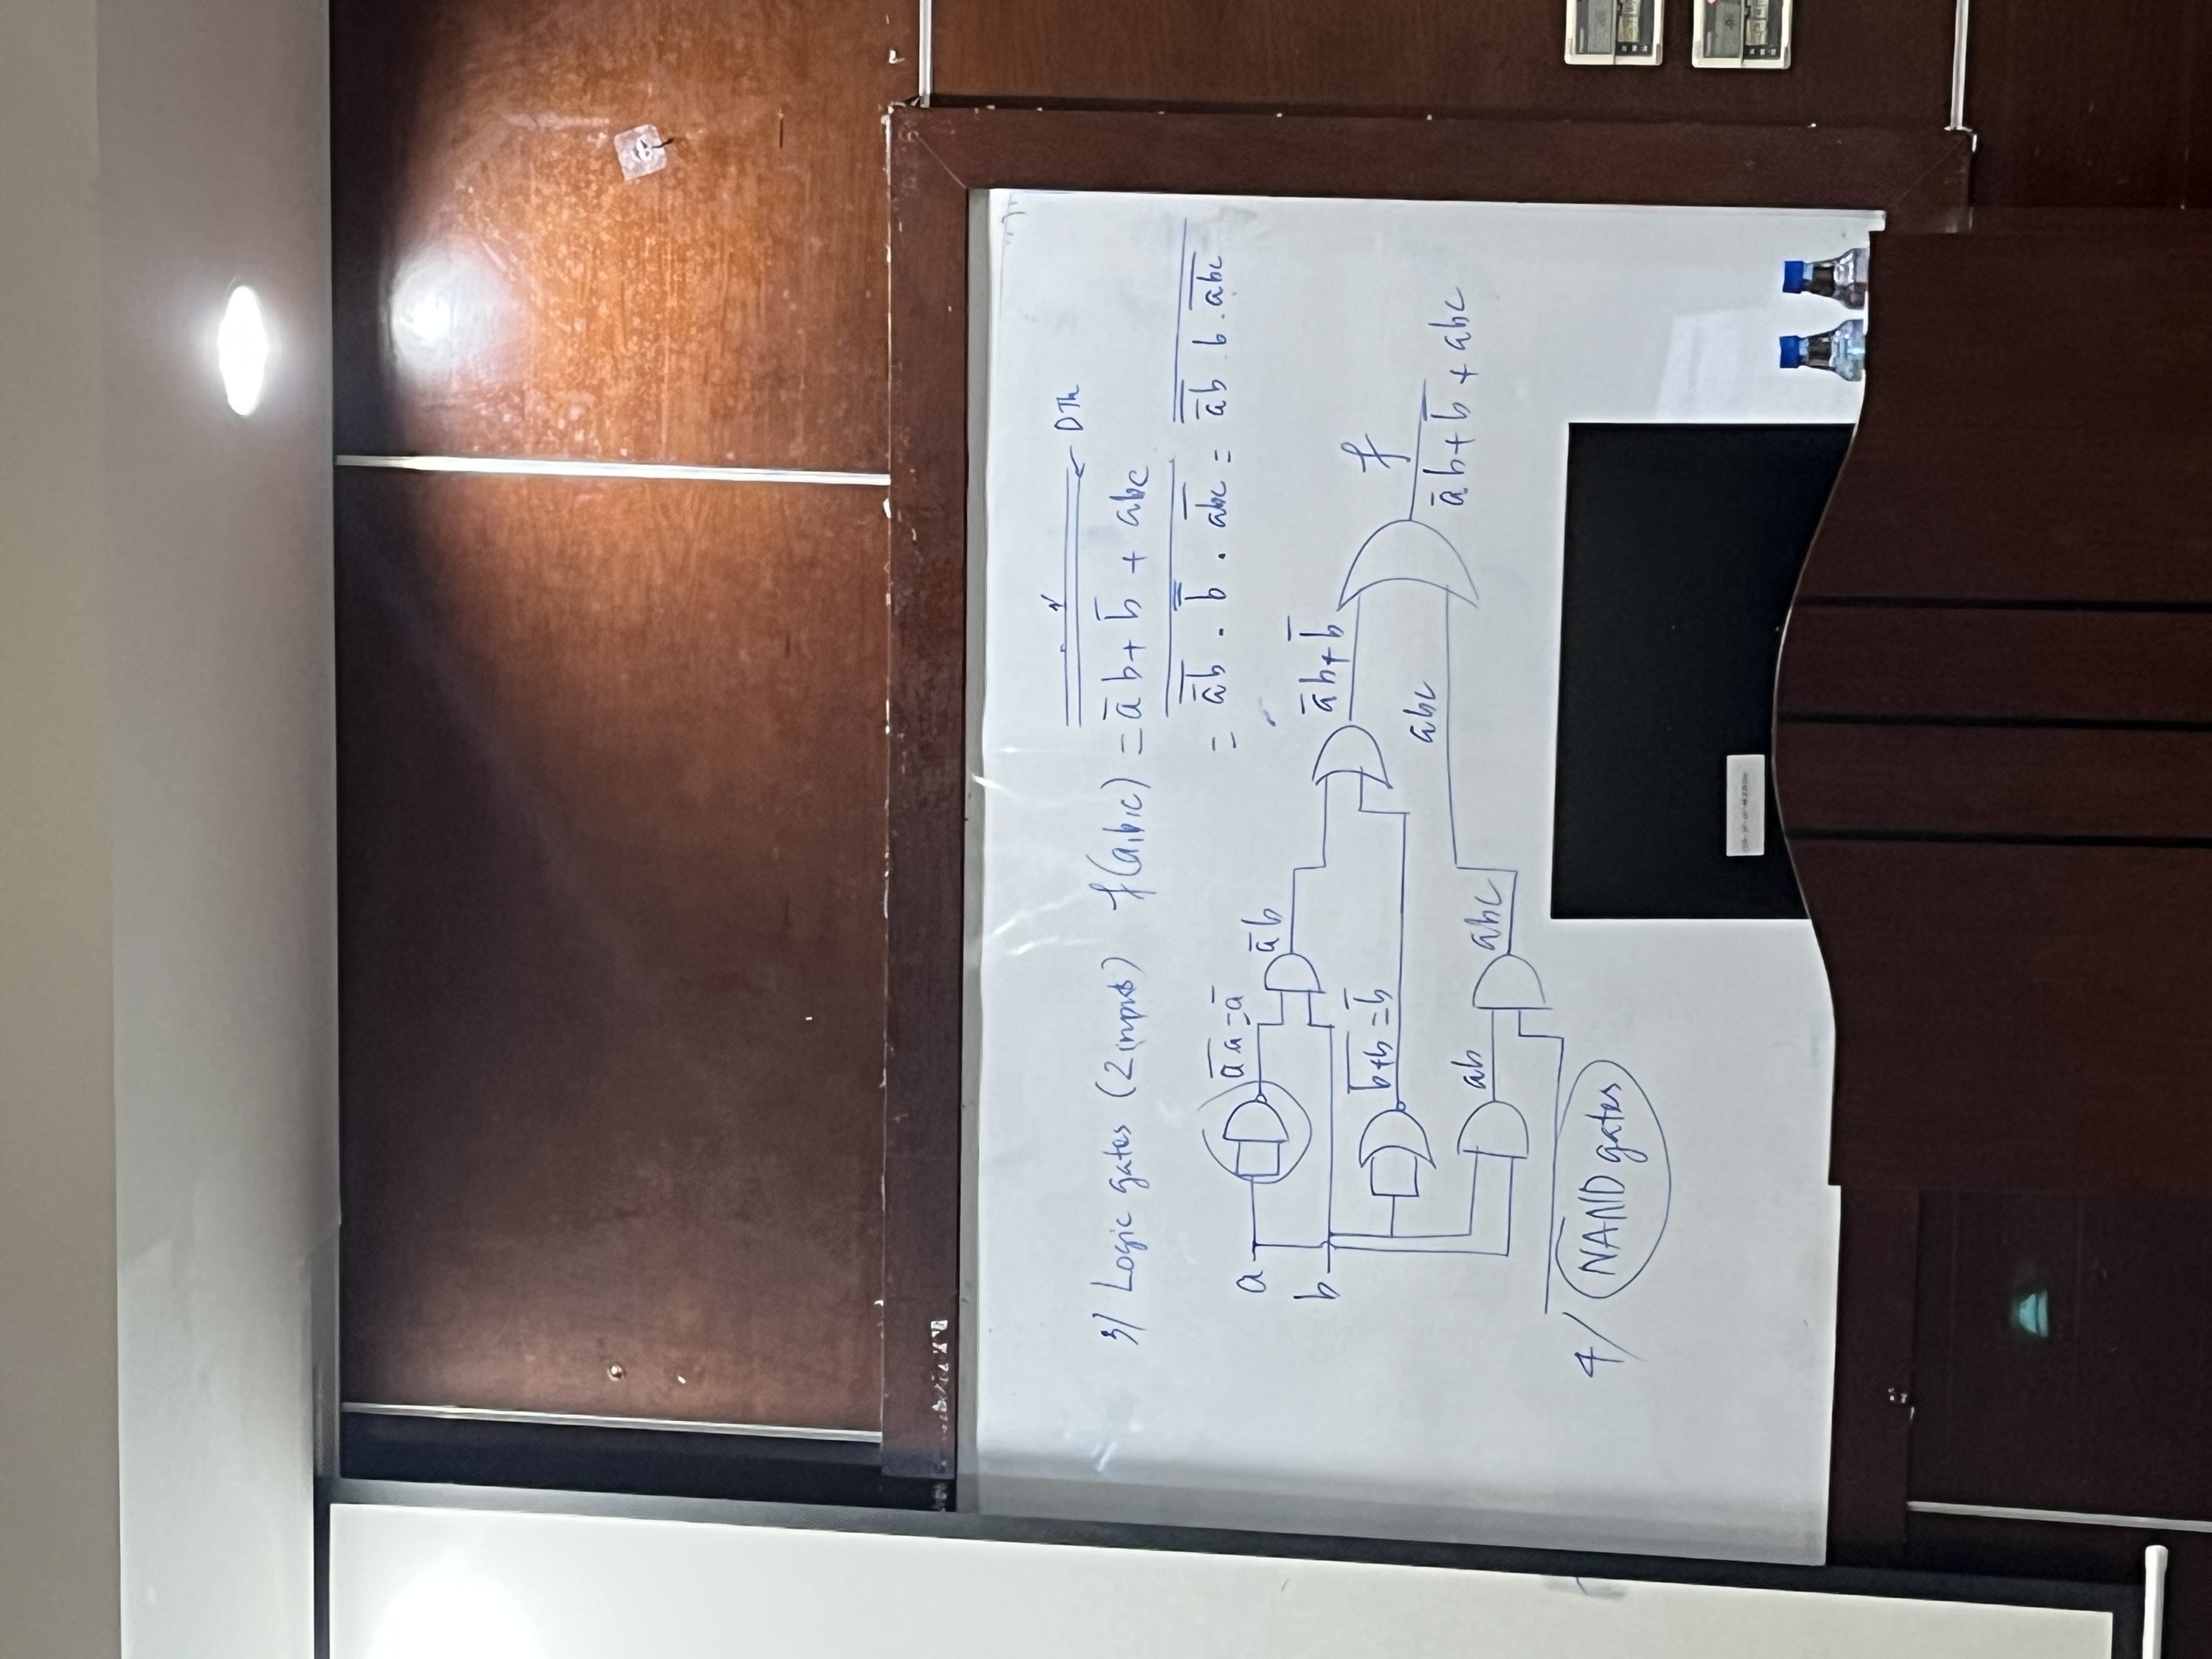 DTh
3/ Logic gates (2 inputs) f(a,b,c) = a̅ b + b̅ + abc
= \overline{\overline{a̅ b} . \overline{b̅} . \overline{abc}} = \overline{\overline{a̅ b} . b . \overline{abc}}
a
\overline{a a} = a̅
a̅ b
b
\overline{b+b} = b̅
a̅ b + b̅
f
abc
a̅ b + b̅ + abc
ab
abc
4/ NAND gates